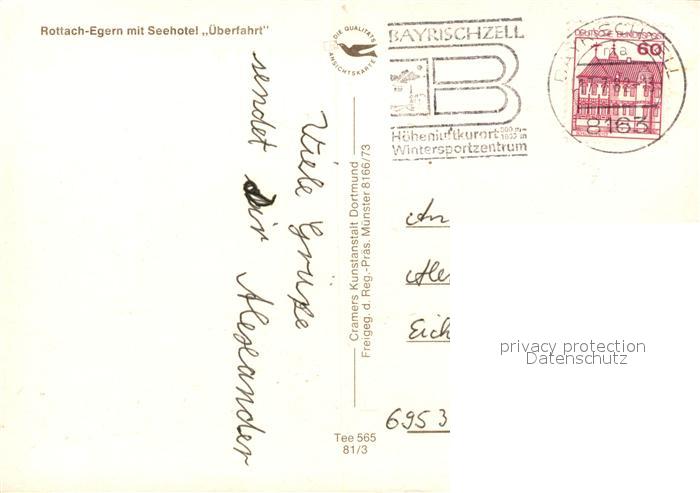 Rottach-Egern mit Seehotel „Überfahrt"
DIE QUALITÄTS
ANSICHTSKARTE
BAYRISCHZELL
B
Höhenluftkurort
Wintersportzentrum
DEUTSCHE BUNDESPOST
60
BAYRISCHZELL
8163
Viele Grüße
sendet Dir Alexander
Cramers Kunstanstalt Dortmund
Freigeg. d. Reg.-Präs. Münster 8166/73
An
Eich
6953
privacy protection
Datenschutz
Tee 565
81/3